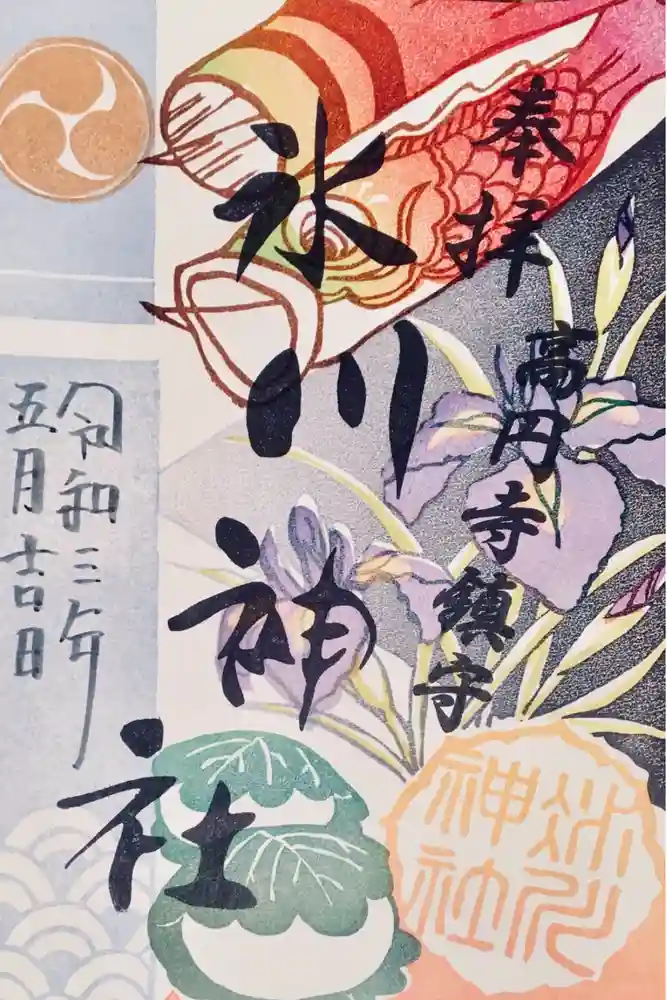 奉拝
高円寺鎮守
氷川神社
令和三年
五月吉日
氷川
神社